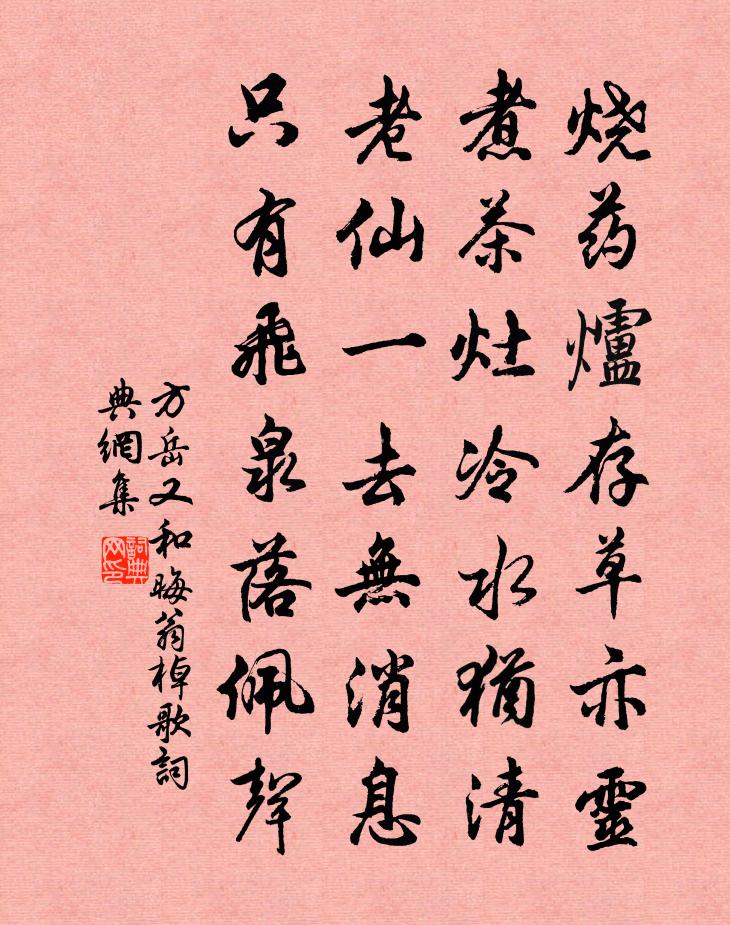 烧药爐存草亦靈
煮茶灶冷水猶清
老仙一去無消息
只有飛泉落佩聲
方岳又和晦翁棹歌詞
典網集
詞典网印